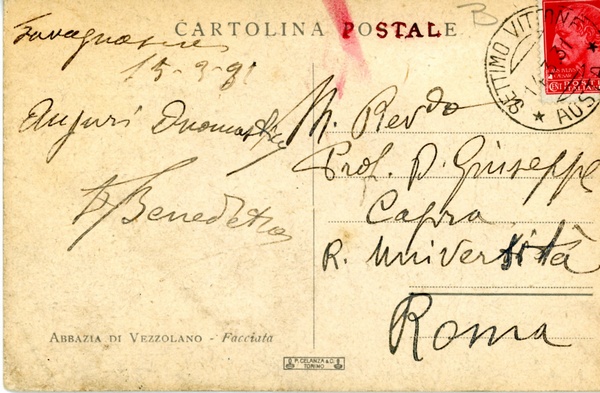 CARTOLINA POSTALE
B
SETTIMO VITTONE
AOS
POSTE
ITALIANE
15-3-
Auguri Onomastico
Benedetto
M. Revdo
Prof. D. Giuseppe
Capra
R. Università
Roma
ABBAZIA DI VEZZOLANO - Facciata
P. CELANZA & C.
TORINO